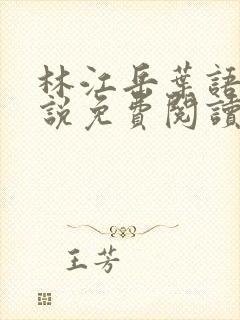 林江岳葉語
說免費閱讀
王芳